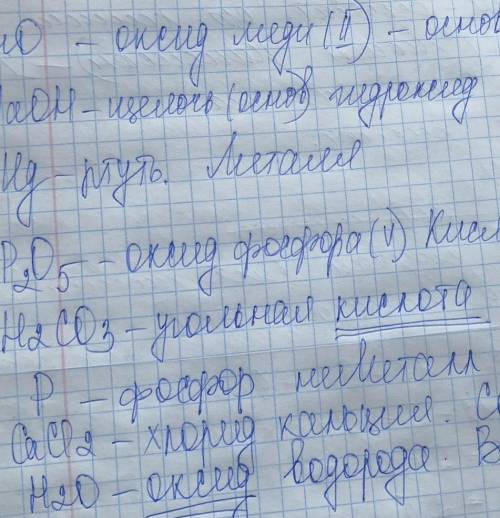 uO – оксид меди (II) – основ
NaOH – щелочь (основ) гидроксид
Hg – ртуть. Металл
P2O5 – оксид фосфора (V) Кисл
H2CO3 – угольная кислота
P – фосфор неМеталл
CaCl2 – хлорид кальция. Со
H2O – оксид водорода. В